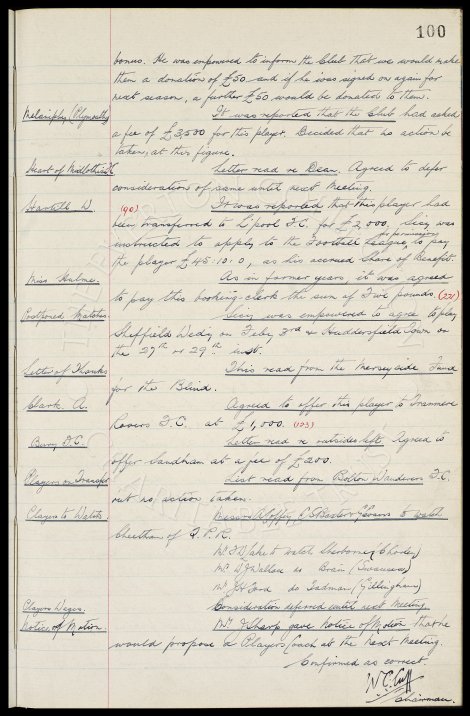 100
bonus. He was empowered to inform the Club that we would make
them a donation of £50 and if he was signed on again for
next season, a further £50 would be donated to them.
(Plymouth) It was reported that the Club had asked
a fee of £3,500 for this player. Decided that no action be
taken, at this figure.
Heart of Midlothian Letter read re Dean. Agreed to defer
consideration of same until next Meeting.
Hartill W. (90) It was reported that this player had
been transferred to L'pool F.C. for £2,000. Secy was
for permission
instructed to apply to the Football League, to pay
the player £45.10.0, as his accrued share of Benefit.
Miss Hulme. As in former years, it was agreed
to pay this booking-clerk the sum of Five pounds. (221)
Postponed Matches Secy was empowered to agree to play
Sheffield Wedy on Feby 3rd & Huddersfield Town on
the 27th or 29th inst.
Letter of Thanks This read from the Merseyside Fund
for the Blind.
Clark. A. Agreed to offer this player to Tranmere
Rovers F.C. at £1,000. (123)
Bury F.C. Letter read re outsides left. Agreed to
offer Sandham at a fee of £200.
Players on Transfer List read from Bolton Wanderers F.C.
but no action taken.
Players to Watch. Messrs & Evans to watch
Cheetham of Q.P.R.
Mr to watch (Chorley)
Mr Wallace do Brain (Swansea)
Mr Ford do Tadman (Gillingham)
Players Wages. Consideration deferred until next Meeting.
Notice of Motion. Mr Sharp gave Notice of Motion that he
would propose a Players Coach at the next Meeting.
Confirmed as correct
W.C. Cuff
Chairman.